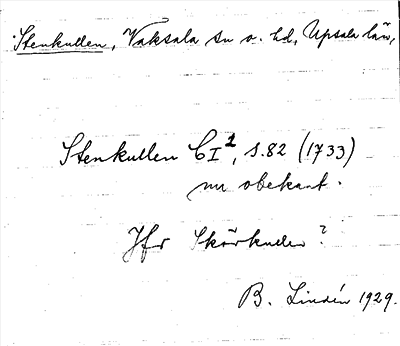 Stenkullen, Vaksala sn o. hd, Upsala län,
Stenkullen CI², s.82 (1733)
nu obekant.
Jfr Skörkullen?
B. Lindén 1929.